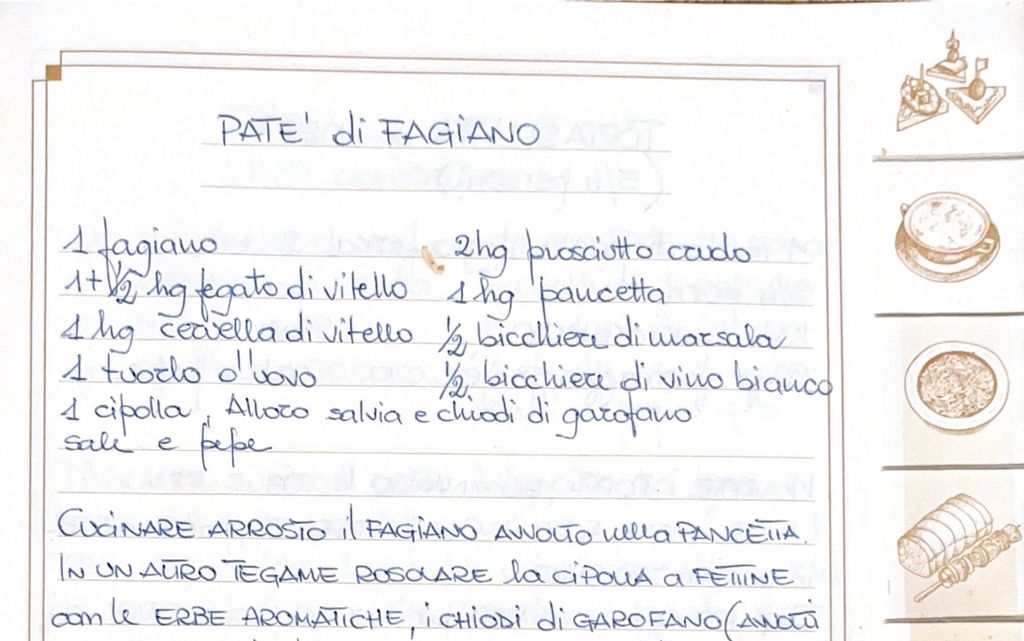 PATE' di FAGIANO
1 fagiano 2hg prosciutto crudo
1+1/2 hg fegato di vitello 1 hg pancetta
1 hg cervella di vitello 1/2 bicchiere di marsala
1 tuorlo d'uovo 1/2 bicchiere di vino bianco
1 cipolla, Alloro salvia e chiodi di garofano
sale e pepe
CUCINARE ARROSTO il FAGIANO AVVOLTO nella PANCETTA.
IN UN ALTRO TEGAME ROSOLARE la CIPOLLA a FETTINE
con le ERBE AROMATICHE, i CHIODI di GAROFANO (AVVOLTI